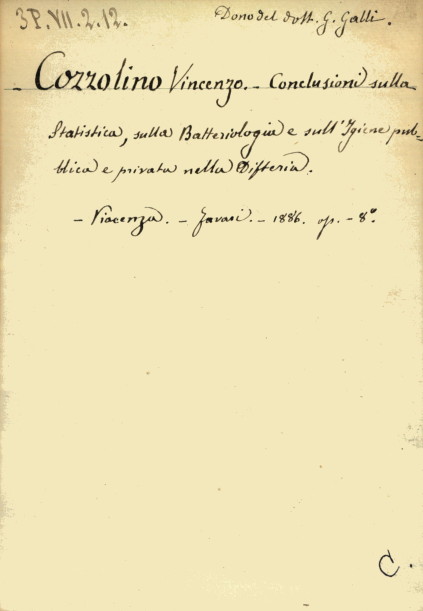 3P.VII.2.12.
Dono del dott. G. Galli.
- Cozzolino Vincenzo. - Conclusioni sulla
Statistica, sulla Batteriologia e sull'Igiene pub-
blica e privata nella Difteria.
- Piacenza. - Javari. - 1886. op. - 8°.
C.